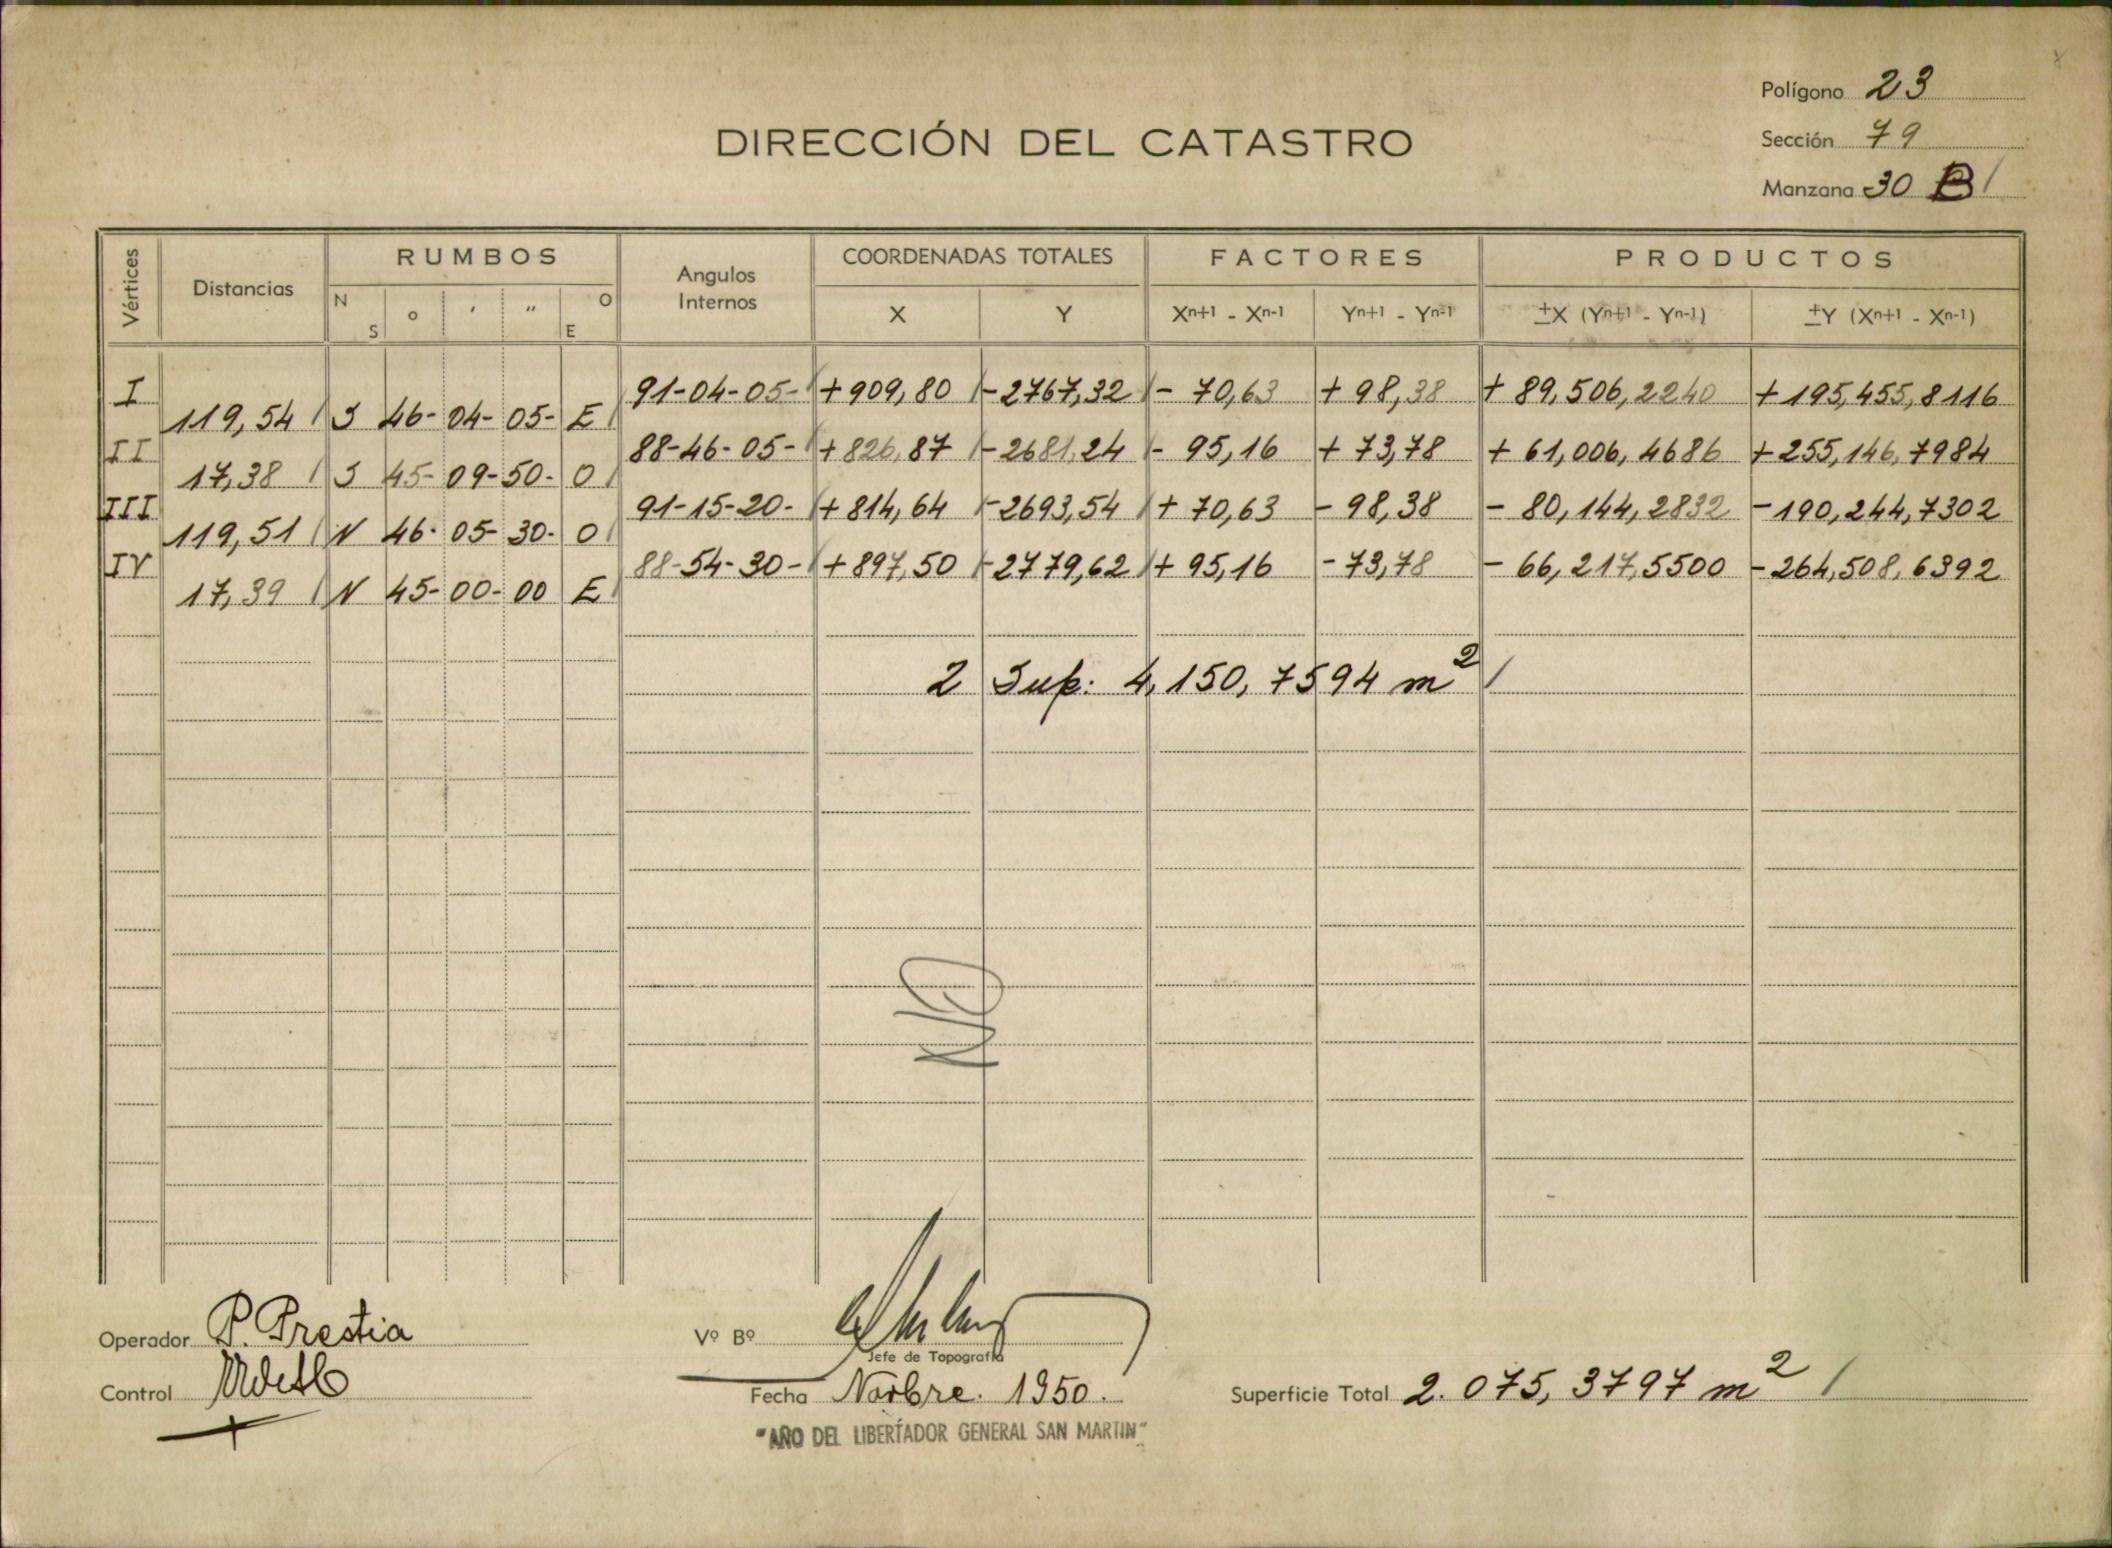 Polígono 23
DIRECCIÓN DEL CATASTRO
Sección 79
Manzana 30 B
Vértices Distancias RUMBOS N S o ' " O E Angulos Internos COORDENADAS TOTALES X Y FACTORES Xn+1 - Xn-1 Yn+1 - Yn-1 PRODUCTOS ±X (Yn+1 - Yn-1) ±Y (Xn+1 - Xn-1)
I 91-04-05- +909,80 -2767,32 - 70,63 + 98,38 + 89,506,2240 +195,455,8116
119,54 S 46- 04- 05- E
II 88-46-05- +826,87 -2681,24 - 95,16 + 73,78 + 61,006,4686 +255,146,7984
17,38 S 45- 09- 50- O
III 91-15-20- +814,64 -2693,54 + 70,63 - 98,38 - 80,144,2832 -190,244,7302
119,51 N 46- 05- 30- O
IV 88-54-30- +897,50 -2779,62 + 95,16 -73,78 - 66,217,5500 -264,508,6392
17,39 N 45- 00- 00 E
2 Sup: 4,150,7594 m²
NO
Operador P. Prestia
Vº Bº
Jefe de Topografía
Control
Fecha Novbre. 1950.
Superficie Total 2.075,3797 m²
"AÑO DEL LIBERTADOR GENERAL SAN MARTIN"